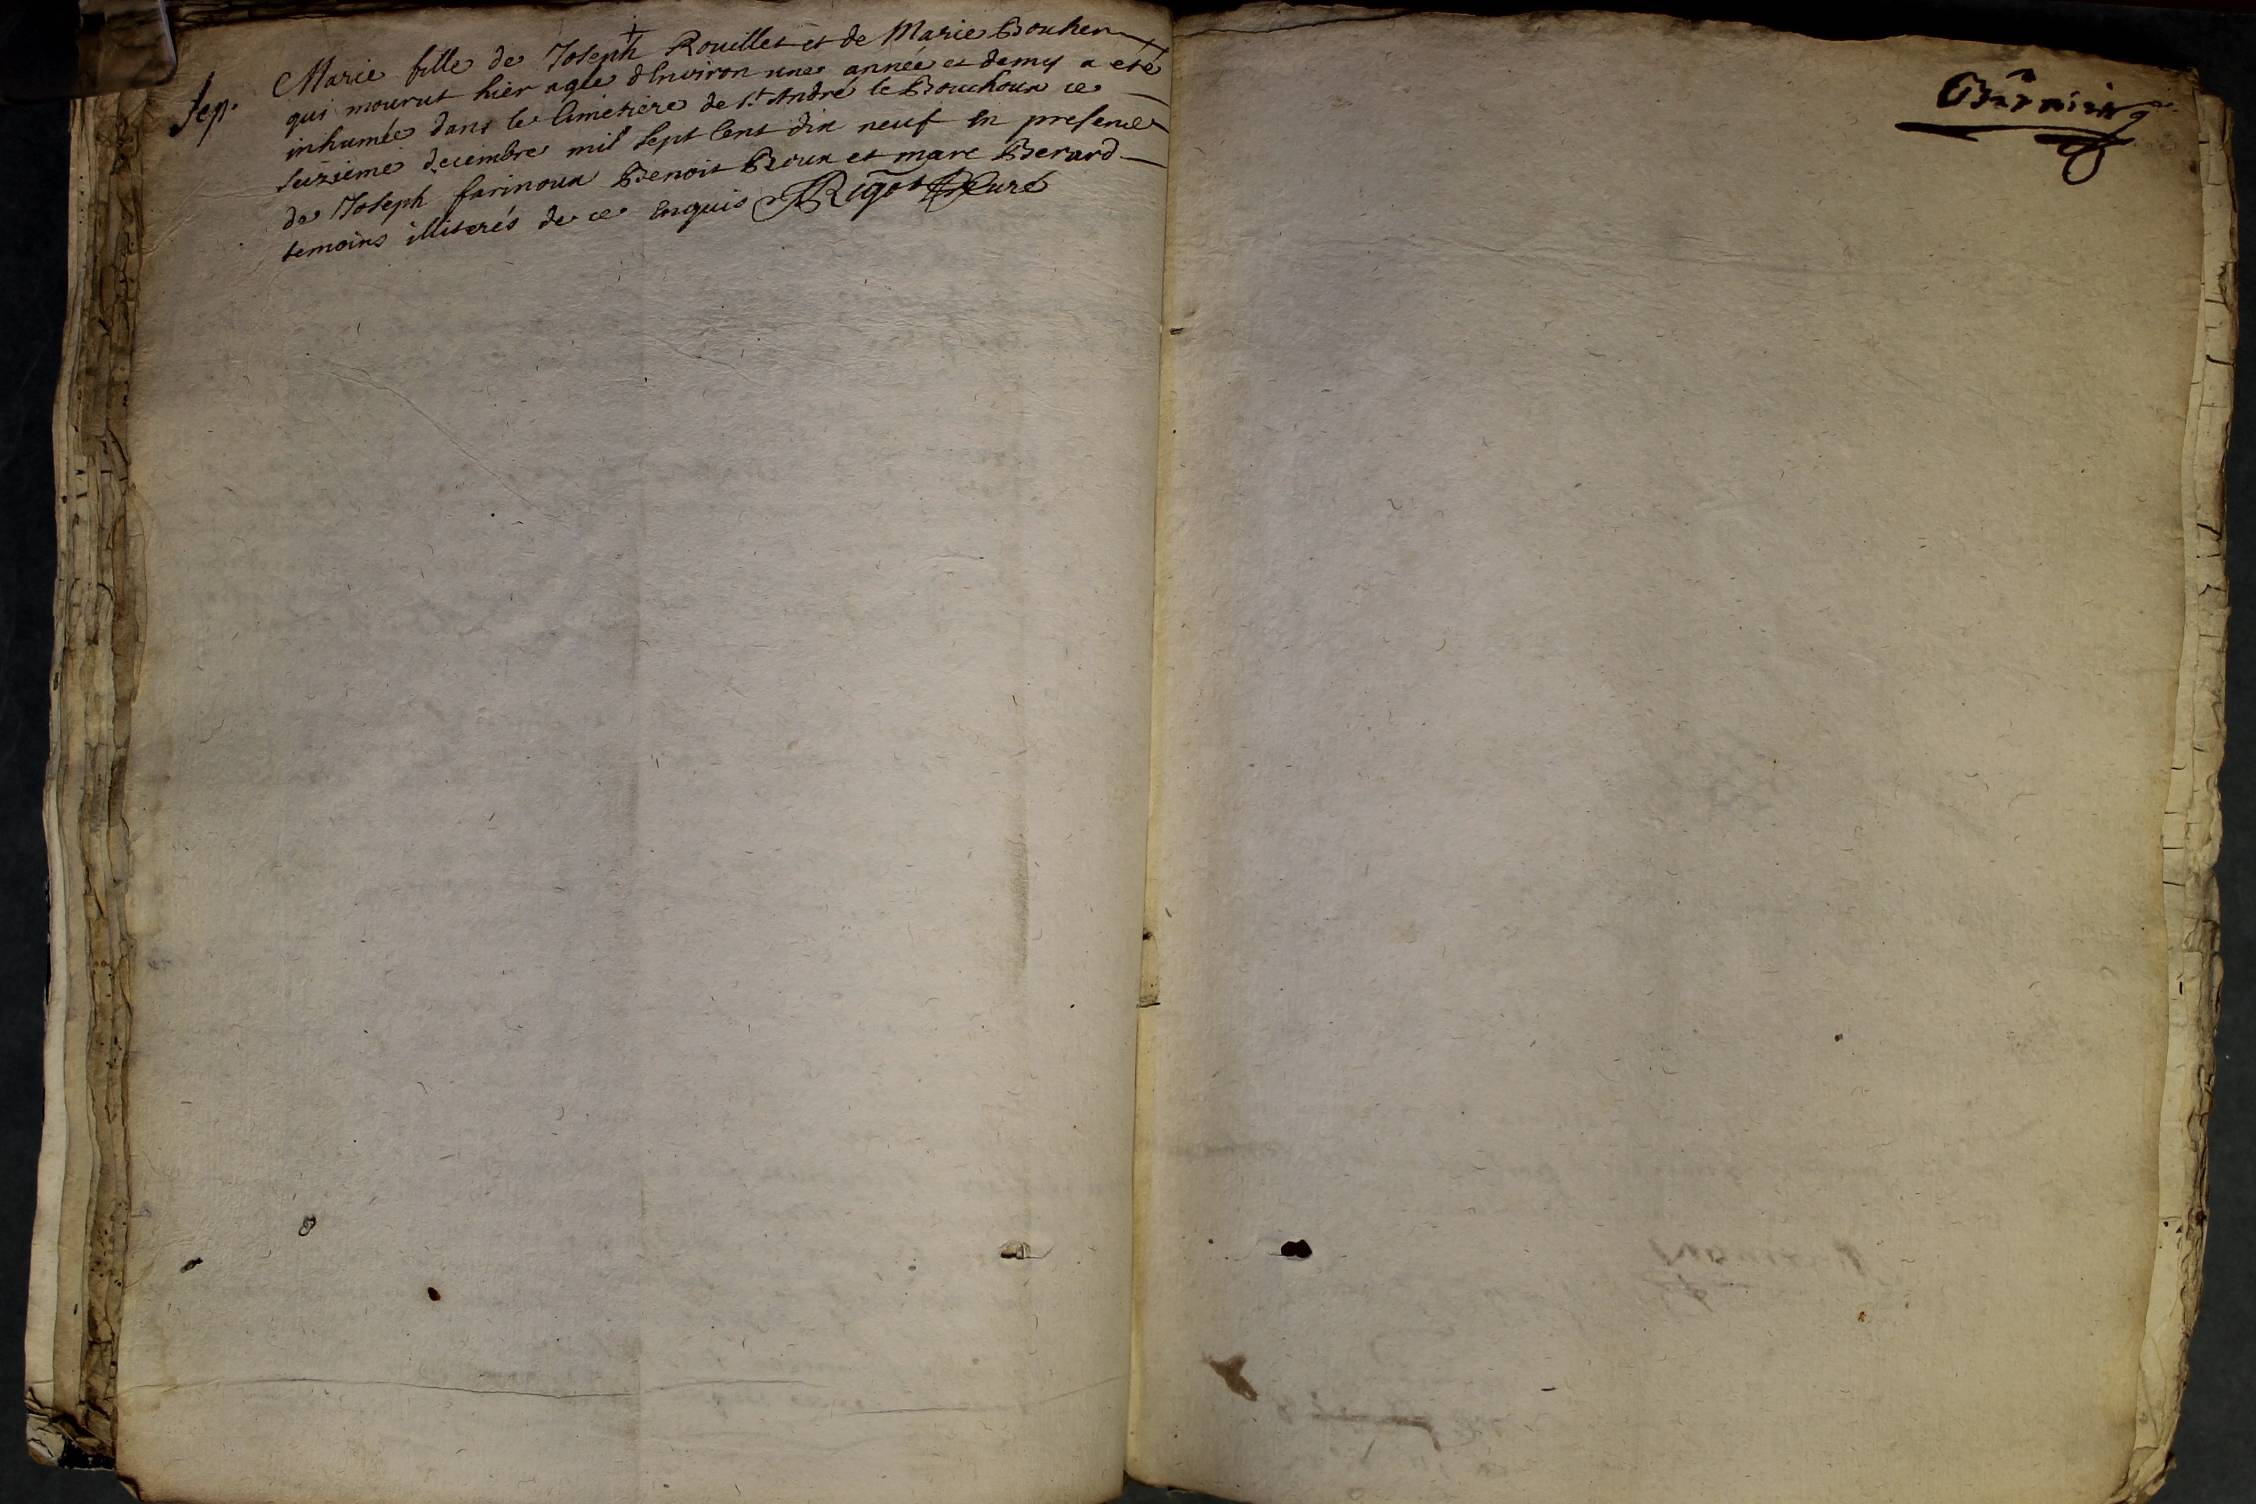 +
Sep.
Marie fille de Joseph Rouillet et de Marie Bouhen
qui mourut hier agée d'Environ une année et demy a eté
inhumée dans le Cimetiere de St. André le Bouchoux ce
seizieme decembre mil sept Cent dix neuf En presence
de Joseph farinoux Benoit Roux et marc Berard
temoins illiterés de ce Enquis Rigot Curé